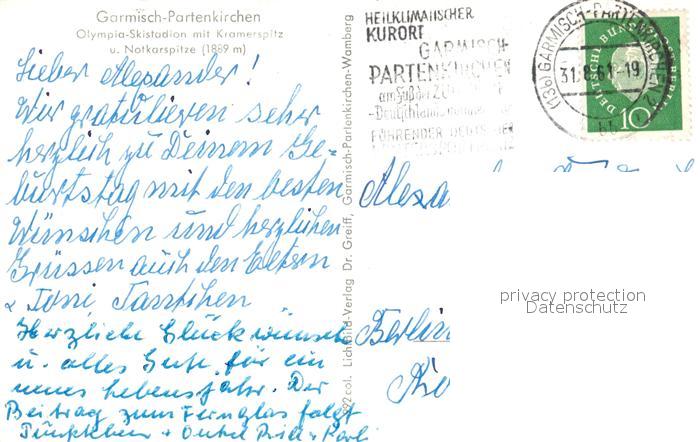 Garmisch-Partenkirchen
Olympia-Skistadion mit Kramerspitz
u. Notkarspitze (1889 m)
Lieber Alexander!
Wir gratulieren sehr
herzlich zu Deinem Ge-
burtstag mit den besten
Wünschen und herzlichen
Grüssen auch den Eltern
Toni
Herzliche Glückwünsche
u. alles Gute für ein
neues Lebensjahr. Der
Beitrag zum Fernglas folgt
+ Onkel
Lichtbild-Verlag Dr. Greiff, Garmisch-Partenkirchen-Wamberg
HEILKLIMATISCHER
KURORT
GARMISCH-
PARTENKIRCHEN
am Fuße der
FÜHRENDER DEUTSCHER
(13b) GARMISCH-PARTENKIRCHEN 2
31.8.61-19
bb
DEUTSCHE BUNDESPOST BERLIN
10
Alexa
Berlin
privacy protection
Datenschutz